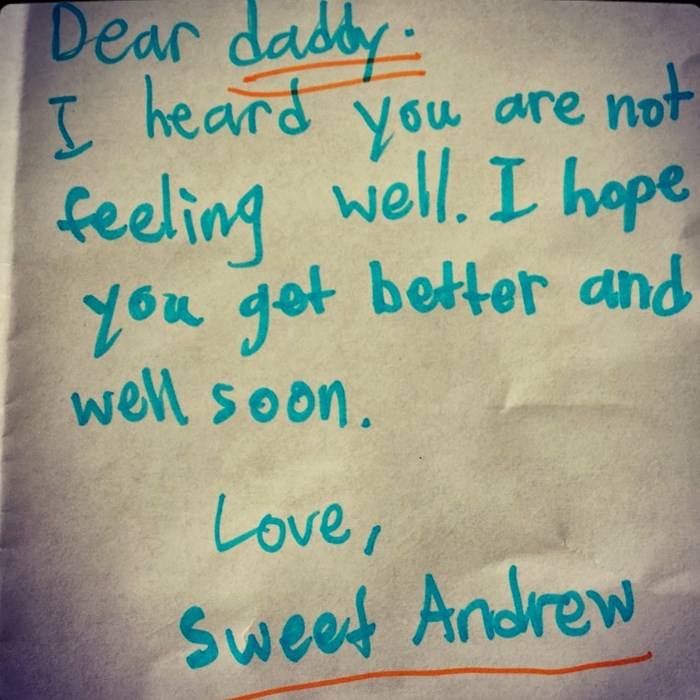 Dear daddy.
I heard you are not
feeling well. I hope
you get better and
well soon.
Love,
Sweet Andrew